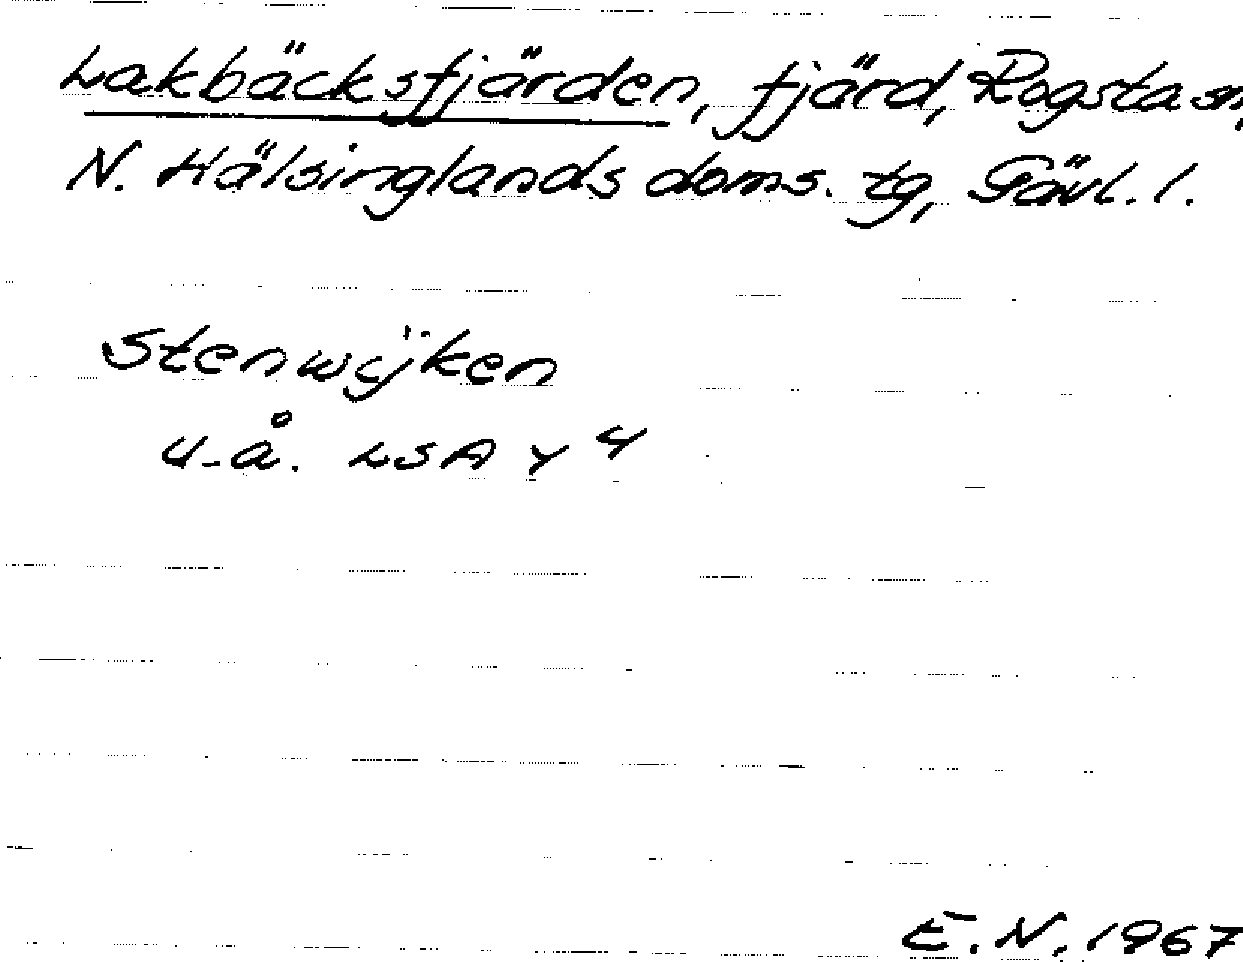 Lakbäcksfjärden, fjärd, Rogsta sn,
N. Hälsinglands doms. tg, Gävl. l.
Stenwijken
u.å. LSA Y 4
E.N. 1967